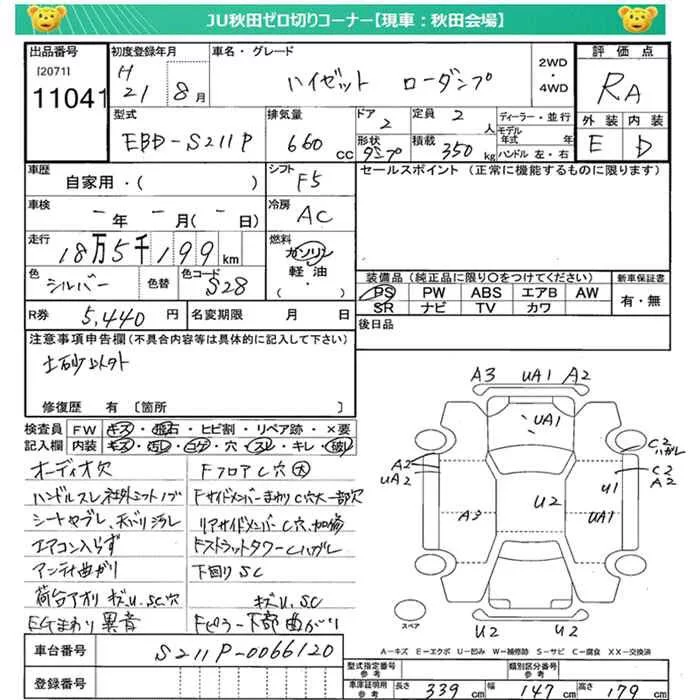 JU秋田ゼロ切りコーナー【現車：秋田会場】
出品番号
[2071]
11041
初度登録年月
H
21 8月
車名・グレード
ハイゼット ローダンプ
2WD
・
4WD
評価点
RA
外装 内装
E D
型式
EBD-S211P
排気量
660 cc
ドア
2
形状
ダンプ
定員 2人
積載 350 kg
ディーラー・並行
モデル年式 年
ハンドル 左・右
車歴
自家用・( )
シフト
F5
車検
-年 -月(-日)
冷房
AC
走行
18万5千199km
燃料
ガソリン
軽油・
( )
色
シルバー
色替
色コード
S28
R券 5,440円
名変期限 月 日
セールスポイント（正常に機能するものに限ります）
装備品（純正品に限り○をつけてください）
PS PW ABS エアB AW
SR ナビ TV カワ
新車保証書
有・無
後日品
注意事項申告欄(不具合内容等は具体的に記入して下さい)
土砂以外
修復歴 有〔箇所 〕
検査員記入欄
FW キズ・飛石・ヒビ割・リペア跡・×要
内装 キズ・汚レ・コゲ・穴・スレ・キレ・破レ
オーディオ欠
ハンドルスレ 社外シフトノブ
シートヤブレ、天バリ汚レ
エアコン入らず
アンテナ曲がり
荷台アオリ キズ、U、SC穴
EGまわり異音
FフロアC穴大
Fサイドメンバーまわり C穴大一部欠
リアサイドメンバー C穴、加修
FストラットタワーCハガレ
下回りSC
キズ、U、SC
Fピラー下部曲がり
A3 UA1 A2
UA1
A2
UA2
A3
U2
C2
ハガレ
C2
A2
U1
UA1
U2 U2
スペア
A－キズ E－エクボ U－凹み W－補修跡 S－サビ C－腐食 XX－交換済
車台番号
S211P-0066120
登録番号
型式指定番号
参考
類別区分番号
参考
車庫証明用
参考
長さ 339cm 幅 147cm 高さ 179cm